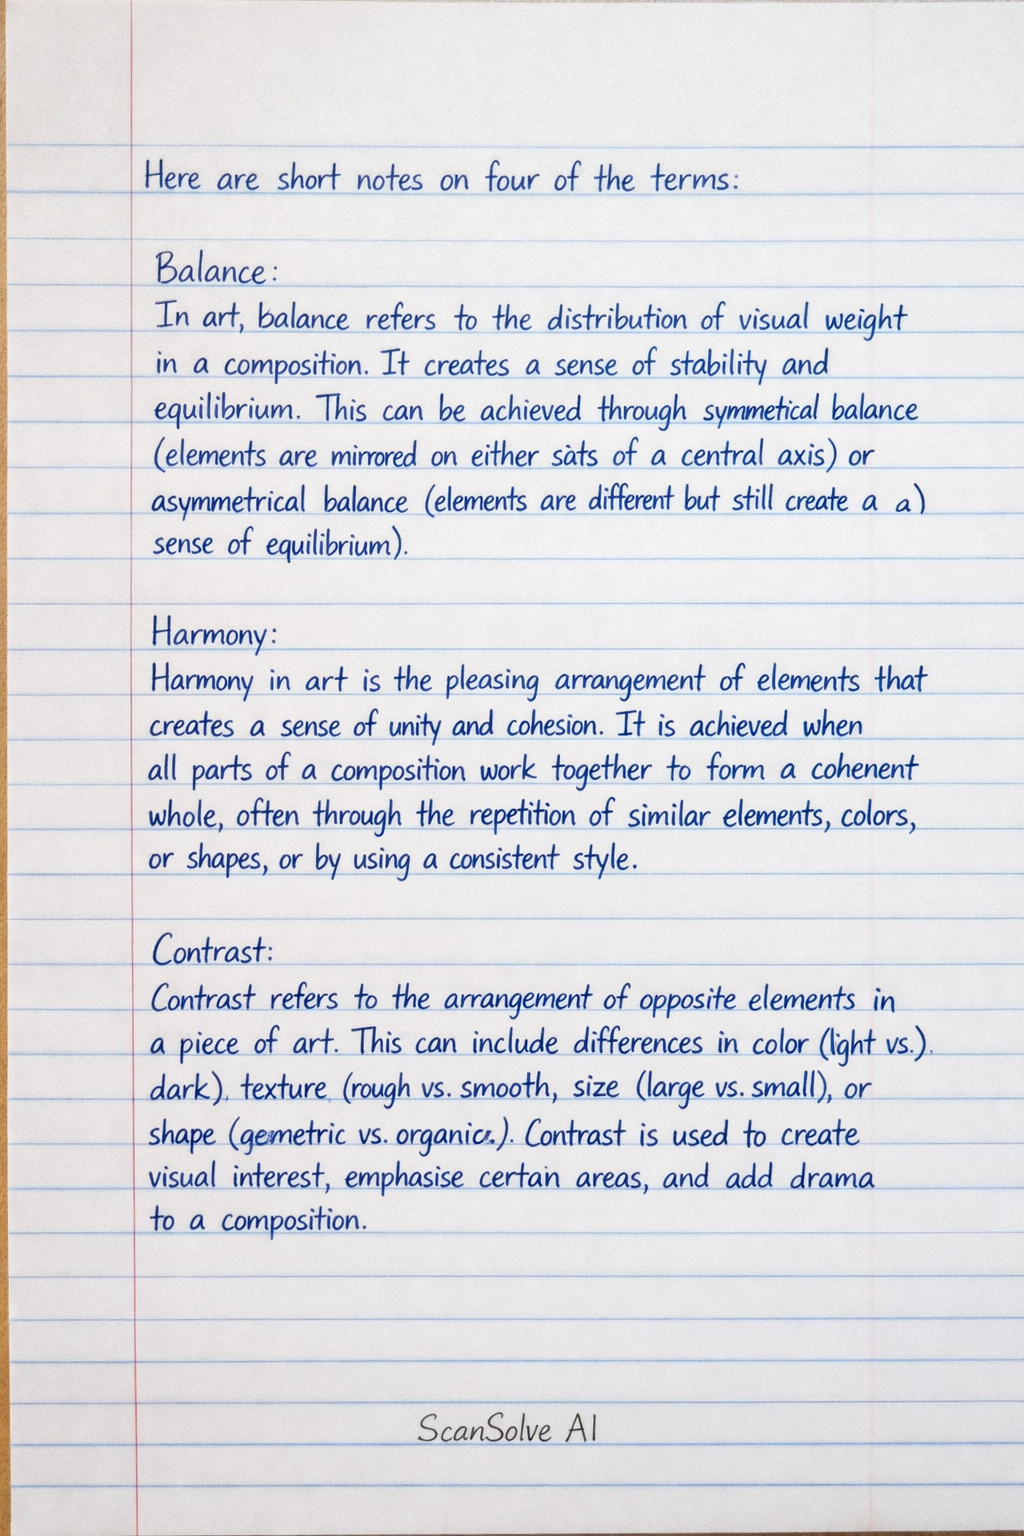 Here are short notes on four of the terms:
Balance:
In art, balance refers to the distribution of visual weight
in a composition. It creates a sense of stability and
equilibrium. This can be achieved through symmetical balance
(elements are mirrored on either sàts of a central axis) or
asymmetrical balance (elements are different but still create a a)
sense of equilibrium).
Harmony:
Harmony in art is the pleasing arrangement of elements that
creates a sense of unity and cohesion. It is achieved when
all parts of a composition work together to form a cohenent
whole, often through the repetition of similar elements, colors,
or shapes, or by using a consistent style.
Contrast:
Contrast refers to the arrangement of opposite elements in
a piece of art. This can include differences in color (light vs.).
dark), texture (rough vs. smooth, size (large vs. small), or
shape (gemetric vs. organic.). Contrast is used to create
visual interest, emphasise certan areas, and add drama
to a composition.
ScanSolve AI